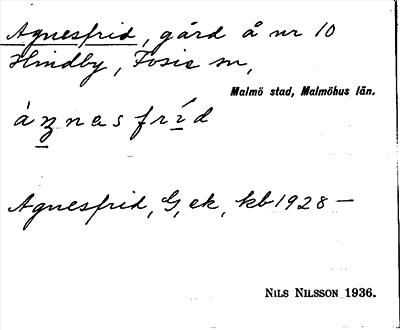 Agnesfrid, gård å nr 10
Hindby, Fosie sn,
Malmö stad, Malmöhus län.
áŋnasfríd
Agnesfrid, G, ek, kb 1928 —
NILS NILSSON 1936.